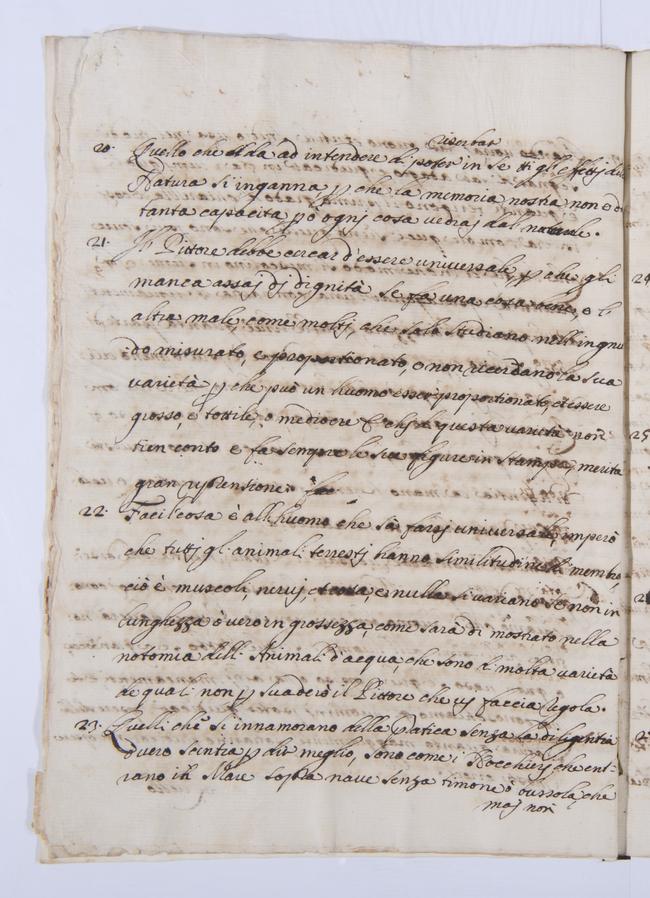 riserbar
20. Quello che si da ad intendere di poter in se tti gl'effetti della
Natura si inganna, p che la memoria nostra non è di
tanta capacita, pò ogni cosa vedraj dal naturale.
21. Il Pittore debbe cercar d'essere universale, p che gli
manca assaj dj dignità se fa una cosa bene, e l'
altra male, come moltj, che solo studiano nell'ingnu
do misurato, e proportionato, e non ricercano la sua
varietà p che può un huomo esser proportionato, et essere
grosso, e sottile, o mediocre E chj di questa varietà non
tien conto e fa sempre le sue figure in stampa, merita
gran riprensione.
22. Facil cosa è all'huomo che sà farsj universale, imperò
che tuttj gl'animali terrestj hanno similitudine di membra,
ciò è muscoli, nervj, et ossa, e nulla si variano se non in
lunghezza ò vero in grossezza, come sarà di mostrato nella
notomia delli Animali d'acqua, che sono di molta varietà
de quali non p suaderò il Pittore che vj faccia regola.
23. Quelli che si innamorano della Pratica senza la diligentia
overo scintia p dir meglio, sono come i Nocchierj che ent-
rano in Mare sopra nave senza timone ò bussola, che
maj non